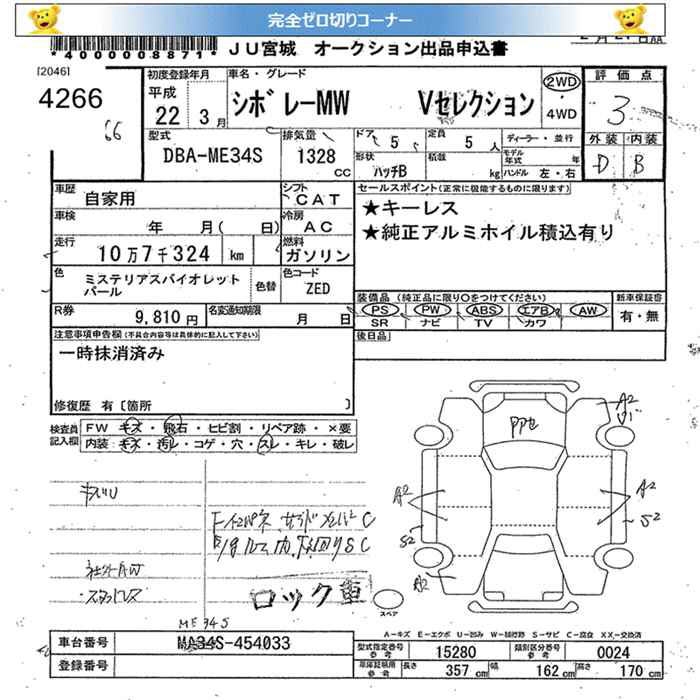 完全ゼロ切りコーナー
*4000008871* JU宮城 オークション出品申込書
[2046]
4266
66
初度登録年月
平成
22 3月
車名・グレード
シボレーMW Vセレクション
2WD
・
4WD
評価点
3
外装 内装
D B
型式
DBA-ME34S
排気量
1328
CC
ドア 5
定員 5人
ディーラー・並行
形状
ハッチB
積載 kg
モデル年式 年
ハンドル 左・右
車歴
自家用
シフト
CAT
セールスポイント(正常に機能するものに限ります)
★キーレス
★純正アルミホイル積込有り
車検
年 月( 日)
冷房
AC
走行
10万7千324 km
燃料
ガソリン
色
ミステリアスバイオレット
パール
色替
色コード
ZED
R券
9,810円
名変通知期限
月 日
装備品(純正品に限り○をつけてください)
PS PW ABS エアB AW
SR ナビ TV カワ
新車保証書
有・無
注意事項申告欄(不具合内容等は具体的に記入して下さい)
一時抹消済み
後日品
修復歴 有〔箇所 〕
検査員
記入欄
FW キズ・飛石・ヒビ割・リペア跡・×要
内装:キズ・汚レ・コゲ・穴・スレ・キレ・破レ
A2
A2
A2
S2
S2
A2
社外AW
・スタッドレス
ロック車
スペア
ME34S
A=キズ E=エクボ U=凹み W=補修跡 S=サビ C=腐食 XX=交換済
車台番号
MA34S-454033
登録番号
型式指定番号
参考
15280
類別区分番号
参考
0024
車庫証明用
参考
長さ 357 cm
幅 162 cm
高さ 170 cm